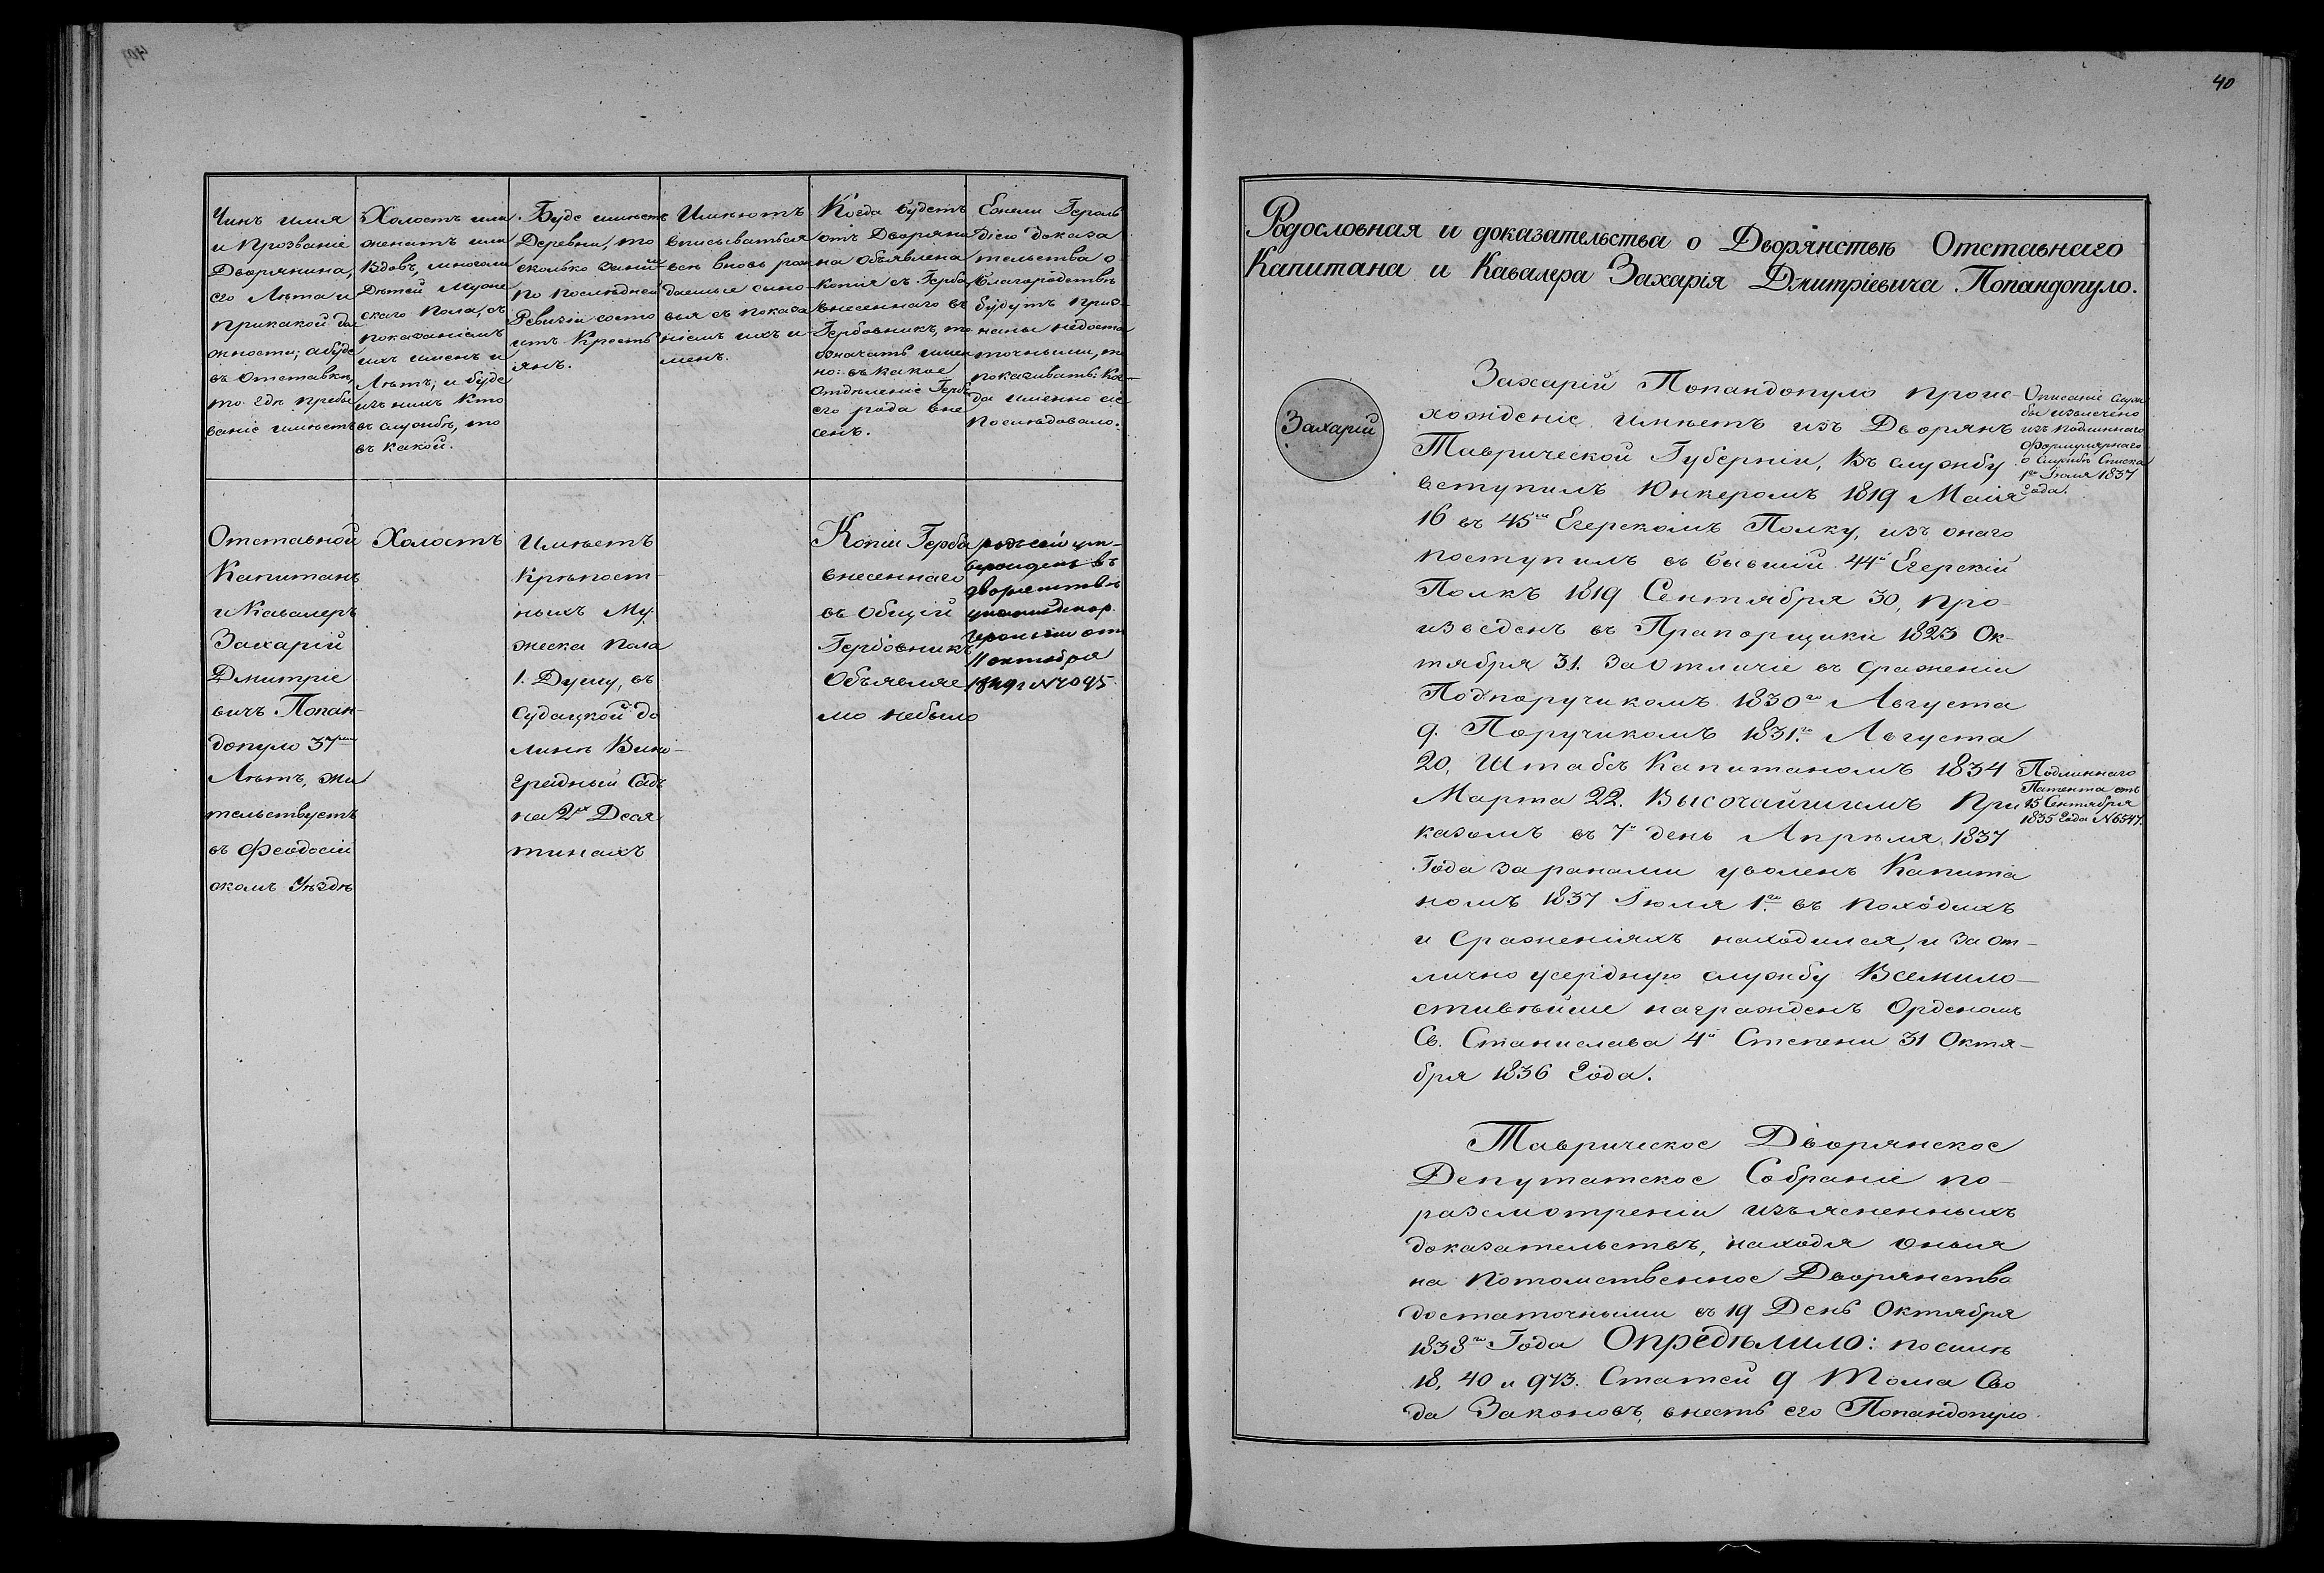 Чинъ имя
и Прозваніе
Дворянина,
его Лѣта и
при какой до
лжности; а буде
въ Отставкѣ,
то гдѣ пребы
ваніе имѣетъ
Холостъ или
женатъ или
Вдовъ, многоли
Дѣтей Муже
скаго пола, съ
показаніемъ
ихъ именъ и
Лѣтъ, и буде
изъ нихъ Кто
въ службѣ, то
въ какой.
Буде имѣетъ
Деревни, то
сколько за ній
по последней
Ревизіи состо
итъ Кресть
янъ.
Имѣютъ
вписываться
всѣ вновь рож
даемые сыно
вья съ показа
ніемъ ихъ и
менъ.
Когда будетъ
отъ Дворяни
на объявлена
копія съ Герба
внесеннаго въ
Гербовникъ, то
означать имен
но: въ какое
Отдѣленіе Гербъ
его рода вне
сенъ.
Ежели Героль
діею доказа
тельства о
благородствѣ
будутъ приз-
наны недоста
точными, то
показывать: Ког
да именно сіе
послѣдовало.
Отставной
Капитанъ
и Кавалеръ
Захарій
Дмитріе
вичъ Попан-
допуло 37ми
Лѣтъ, жи
тельствуетъ
въ Феодосій
скомъ Уѣздѣ
Холостъ
Имѣетъ
Крѣпост-
ныхъ Му-
жеска пола
1. Душу, въ
Судацкой до
линѣ Вино-
градный Садъ
на 2хъ Деся
тинахъ
Копіи Герба
внесеннаго
въ Общій
Гербовникъ
Объявляе
мо небыло
родъ сей ут-
вержденъ въ
дворянствѣ
указомъ депар.
Герольдіи отъ
11 октября
1849 г N 7095.
40
Родословная и доказательства о Дворянствѣ Отставнаго
Капитана и Кавалера Захарія Дмитріевича Попандопуло.
Захарій
Захарій Попандопуло проис-
хожденіе имѣетъ изъ Дворянъ
Таврической Губерніи, Въ службу
вступилъ Юнкеромъ 1819 Маія
16 въ 45мъ Егерскомъ Полку, изъ онаго
поступилъ въ бывшій 44й Егерскій
Полкъ 1819 Сентября 30, про-
изведенъ въ Прапорщики 1823 Ок-
тября 31. За Отличіе въ сраженіи
Подпоручикомъ 1830го Августа
9. Поручикомъ 1831го Августа
20, Штабсъ Капитаномъ 1834
Марта 22. Высочайшимъ При
казомъ въ 7й день Апрѣля 1837
Года за ранами уволенъ Капита
номъ 1837 Іюля 1го въ походахъ
и Сраженіяхъ находился, и за от-
лично усердную службу Всемило-
стивѣйше награжденъ Орденомъ
Св. Станислава 4й Степени 31 Октя-
бря 1836 Года.
Описаніе служ
бы извлечено
изъ подлиннаго
Формулярнаго
о Службѣ Списка
1го Іюля 1837
года.
Подлиннаго
Патента отъ
15 Сентября
1835 Года N 6547.
Таврическое Дворянское
Депутатское Собраніе по-
разсмотреніи изъясненныхъ
доказательствъ, находя оныя
на потомственное Дворянство
достаточными въ 19 День Октября
1838го Года Опредѣлило: по силѣ
18, 40 и 973. Статей 9 Тома Сво
да Законовъ, внесть его Попандопуло